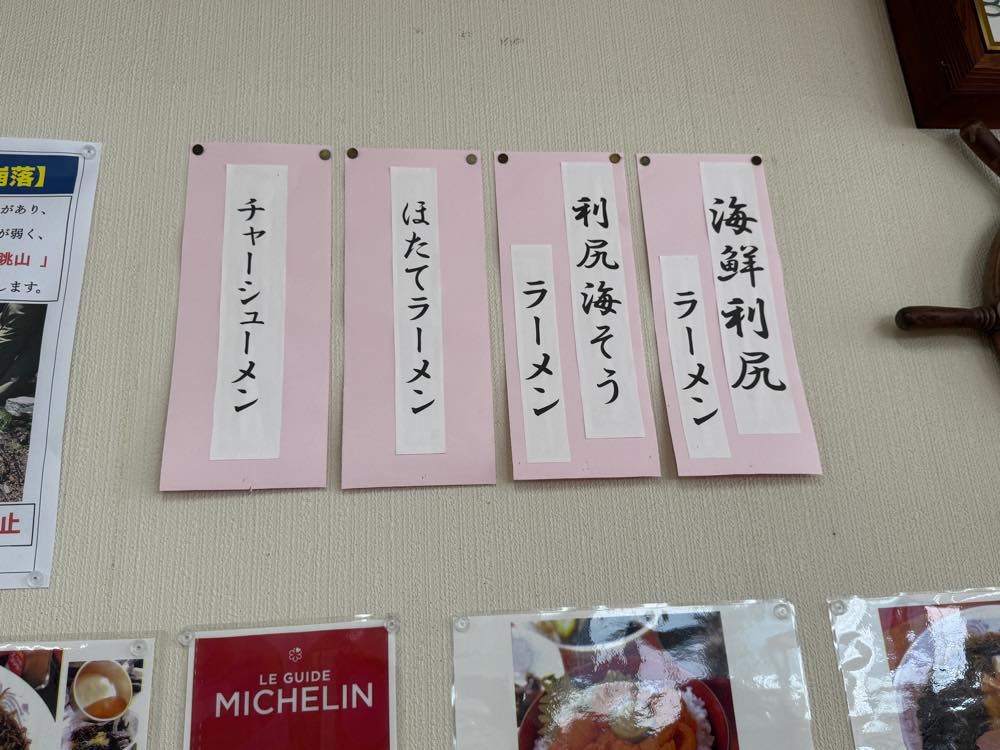 海鮮利尻
ラーメン
利尻海そう
ラーメン
ほたてラーメン
チャーシューメン
落】
があり、
が弱く、
眺山 」
します。
止
LE GUIDE
MICHELIN